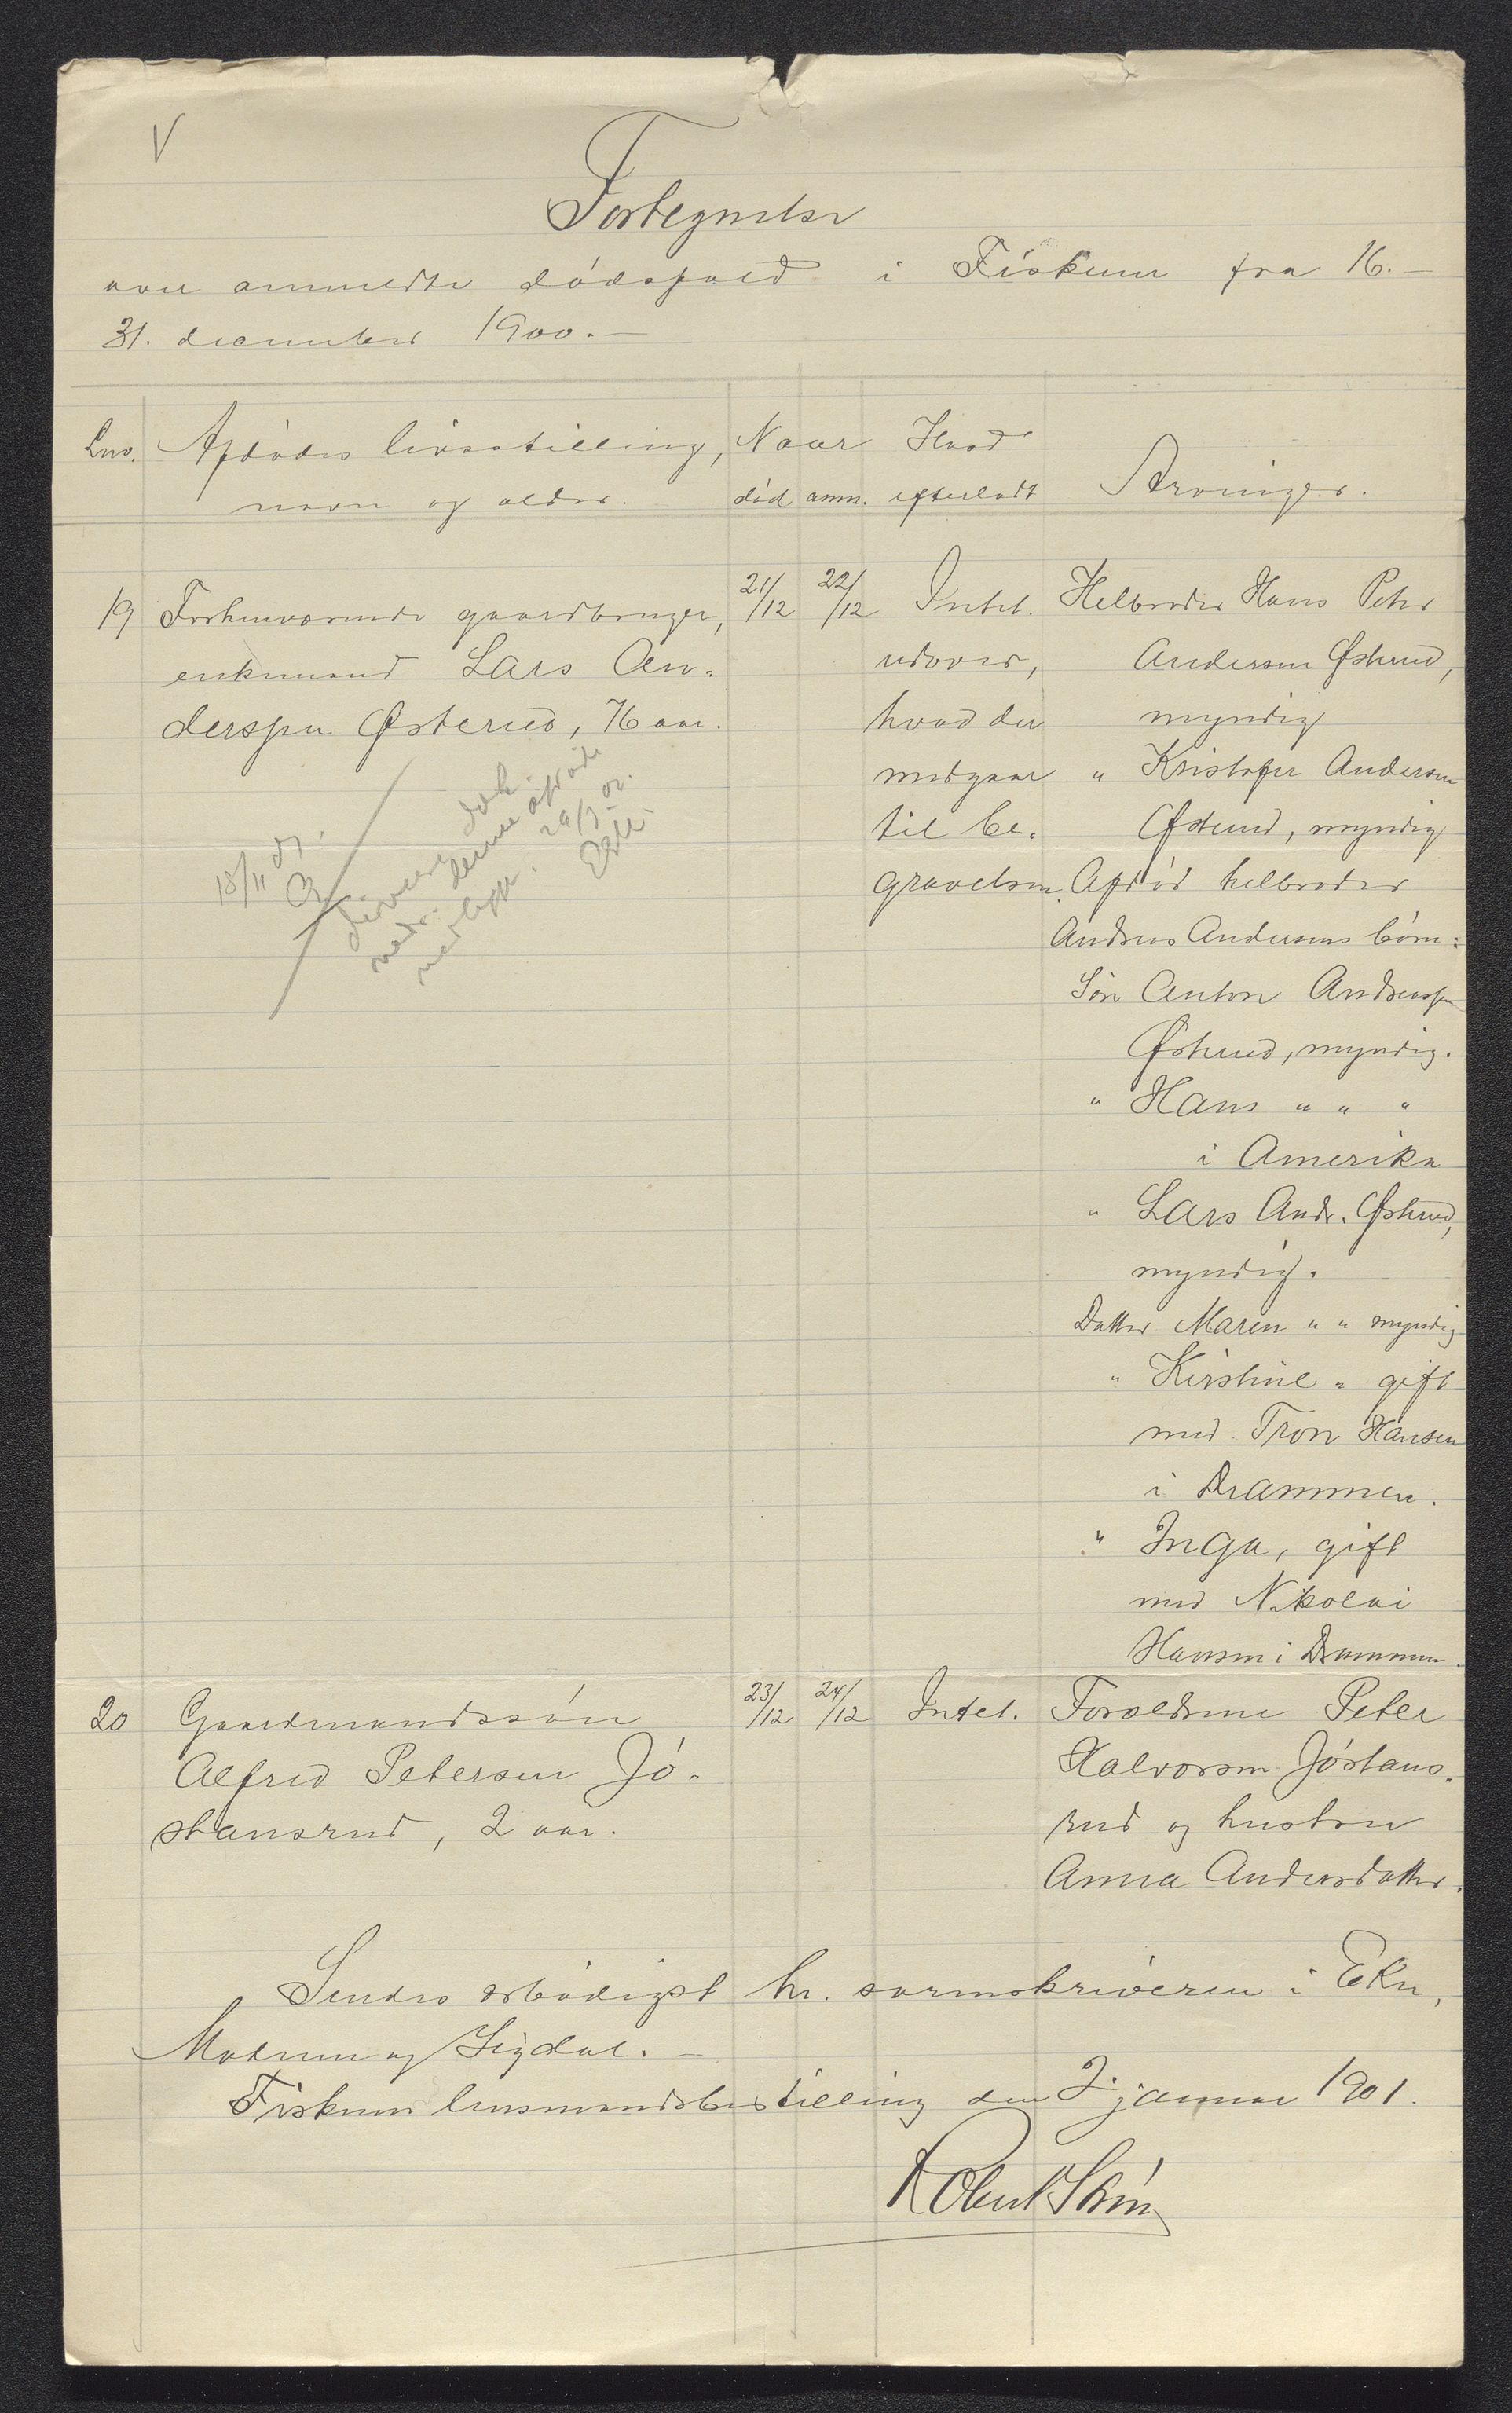 V
Fortegnelse
over anmeldte dødsfald i Fiskum fra 16.–
31. december 1900.–
Lno. Afdødes livsstilling, navn og alder. Naar død anm. Hvad efterladt Arvinger.
19 Forhenværende gaardbruger,
enkemand Lars An-
dersen Østerud, 76 aar.
21/12 22/12
Intet
udover,
hvad der
medgaar
til be-
gravelsen.
Helbroder Hans Peter
Andersen Østerud,
myndig
" Kristofer Andersen
Østerud, myndig
Afdød helbroder
Andreas Andersens børn:
Søn Anton Andreassen
Østerud, myndig.
" Hans " " "
i Amerika
" Lars Andr. Østerud,
myndig.
Datter Maren " " myndig
" Kirstine " gift
med Tron Hansen
i Drammen.
" Inga, gift
med Nikolai
Hansen i Drammen.
18/11 01
denne afdøde
29/9 02.
20 Gaardmandssøn
Alfred Petersen Jø-
stansrud, 2 aar.
23/12 24/12
Intet.
Forældrene Peter
Halvorsen Jøstans-
rud og hustru
Anna Andersdatter.
Sendes ærbødigst hr. sorenskriveren i Eker,
Modum og Sigdal.–
Fiskum lensmandsbestilling den 2 januar 1901.
Robert Strøm